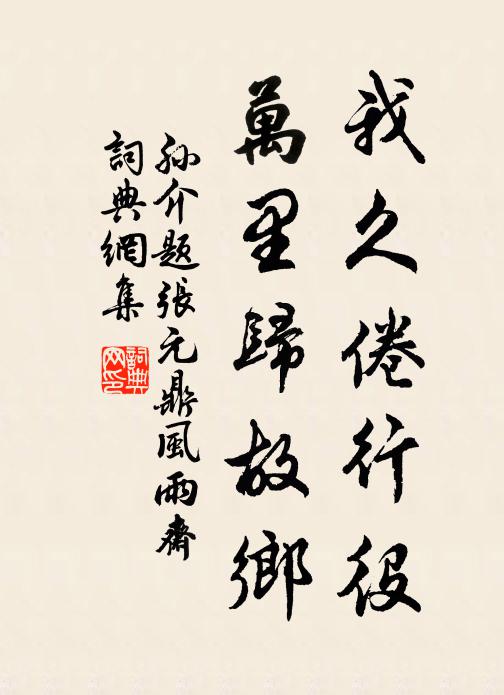 我久倦行役
萬里歸故鄉
孫介題張元鼎風雨齋
詞典網集
詞典网印